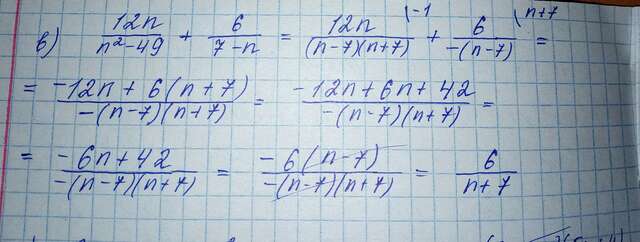 в) 12n/(n²-49) + 6/(7-n) = 12n/((n-7)(n+7)) \-1 + 6/(-(n-7)) \n+7 =
= (-12n + 6(n+7))/(-(n-7)(n+7)) = (-12n+6n+42)/(-(n-7)(n+7)) =
= (-6n+42)/(-(n-7)(n+7)) = (-6(n-7))/(-(n-7)(n+7)) = 6/(n+7)